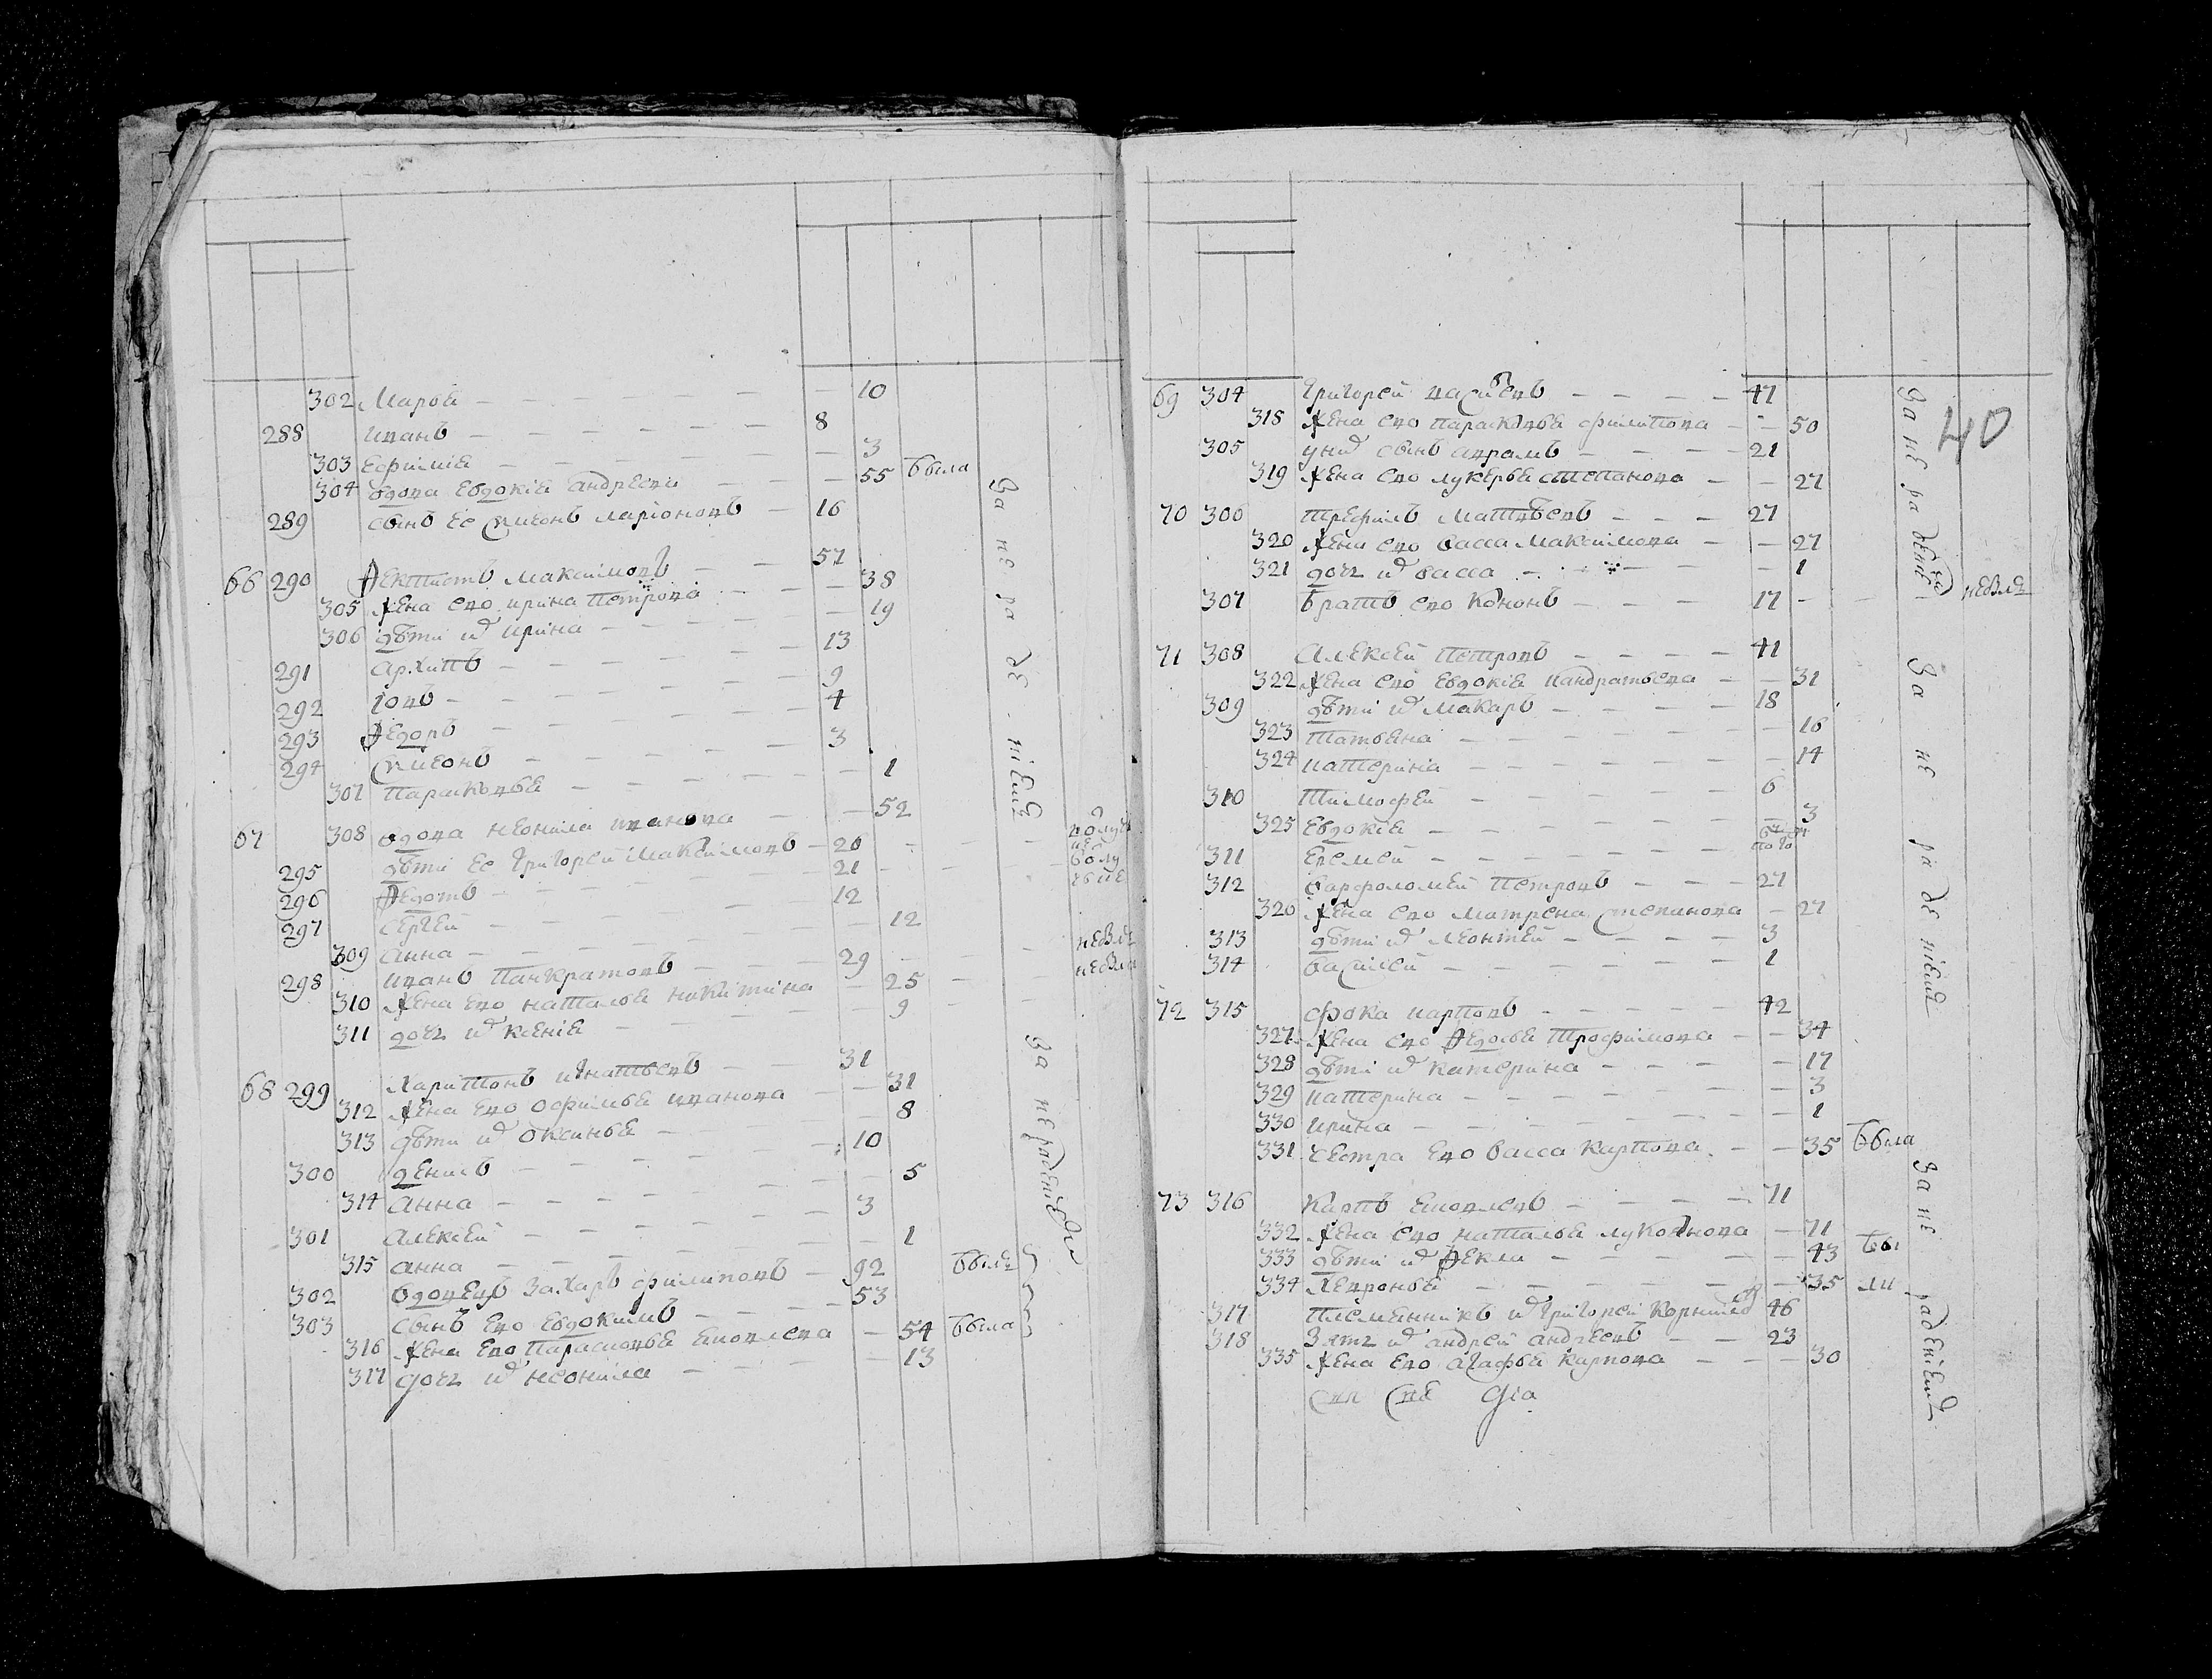 302 Марѳа — 10
288 иванъ — 8
303 Ефимия — 3
304 вдова Евдокия андреева — 55 была
289 сынъ ее Симеонъ ларионовъ — 16
66 290 Ѳектистъ Максимовъ — 57
305 жена ево ирина Петрова — 38
306 дѣти их ирина — 19
291 архипъ — 13
292 иовъ — 9
293 Ѳедоръ — 4
294 Симеонъ — 3
307 Парасковья — 1
за нерадениемъ
67 308 вдова неонила иванова — 52
295 дѣти ее Григорей Максимовъ — 20
296 Ѳедотъ — 21
297 Сергей — 12
309 анна — 12
298 иванъ Панкратовъ — 29
310 жена ево наталья никитина — 25
311 дочь их ксения — 9
68 299 Харитонъ игнатьевъ — 31
312 жена ево офимья иванова — 31
313 дѣти их оксинья — 8
300 денисъ — 10
314 анна — 5
301 алексей — 3
315 анна — 1
за нерадениемъ
302 вдовецъ захаръ филиповъ — 92 былъ
303 сынъ ево евдокимъ — 53
316 жена ево Парасковья — 54 была
317 дочь их неонила — 13
40
69 304 Григорей — 47
318 жена ево Парасковья филипова — 50
305 у них сынъ аврамъ — 21
319 жена ево лукерья степанова — 27
70 306 Трефилъ Матвѣевъ — 27
320 жена ево васса максимова — 27
321 дочь их васса — 1
307 братъ ево Кононъ — 17
за нерадениемъ
71 308 алексей Петровъ — 41
322 жена ево евдокия кандратьева — 31
309 дѣти их макаръ — 18
323 Татьяна — 16
324 катерина — 14
310 Тимофей — 6
325 Евдокия — 3
311 Еремей —
312 варфоломей Петровъ — 27
326 жена ево матрена степанова — 27
313 дѣти их леонтей — 3
314 василей — 1
за нерадениемъ
72 315 фока карповъ — 42
327 жена ево Ѳедосья Трофимова — 34
328 дѣти их катерина — 17
329 катерина — 3
330 ирина — 1
331 сестра ево васса карпова — 35 была
73 316 карпъ — 71
332 жена ево наталья — 71
333 дѣти их Ѳекла — 43 бы
334 хевронья — 35 ли
317 племянникъ их Григорей корниловъ 46
318 зять их андрей андреевъ — 23
335 жена ево агафья карпова — 30
за нерадениемъ